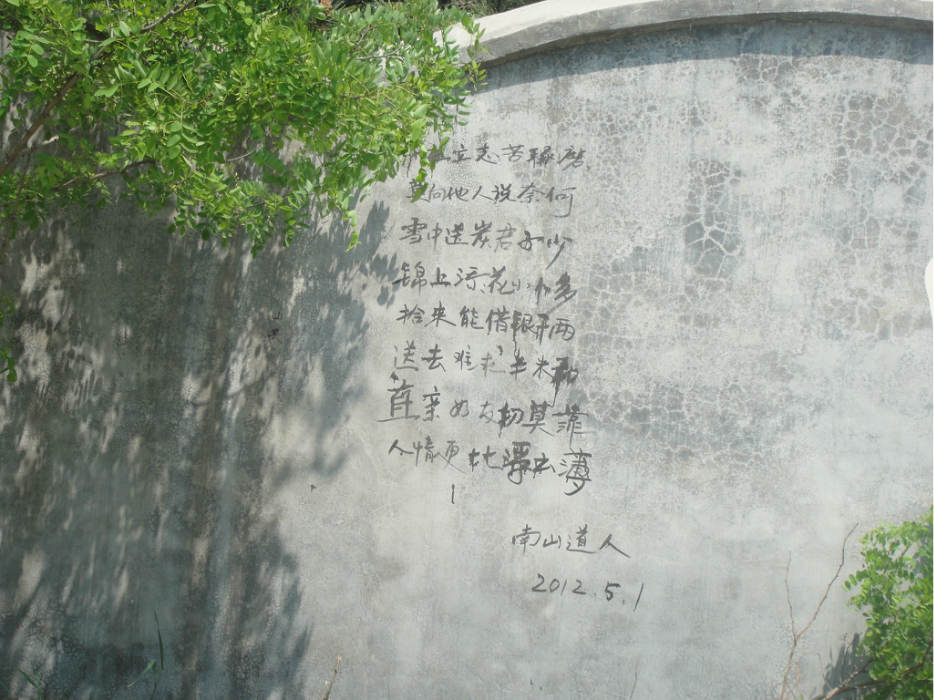 立志苦
莫向他人说奈何
雪中送炭君子少
锦上添花小人多
拾来能借银两
送去难求半米
亲好友切莫靠
人情更比薄
南山道人
2012.5.1